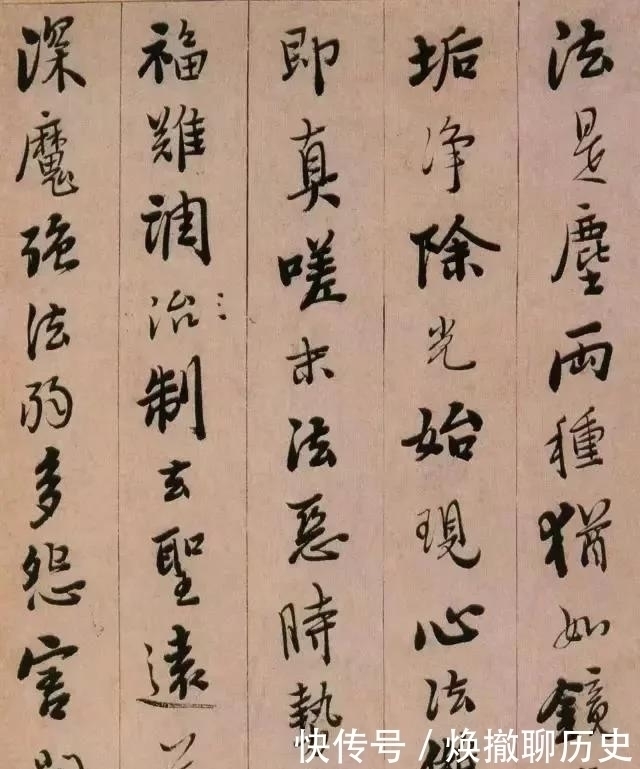 法是塵兩種猶如鏡
垢净除光始現心法
即真嗟末法惡時勢
福難調治制去聖遠
深魔强法弱多怨害
快传号 / 焕撤聊历史